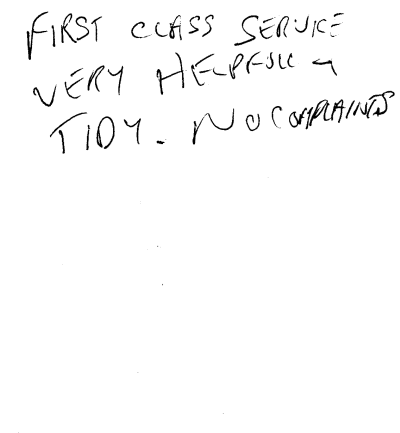 FIRST CLASS SERVICE
VERY HELPFULL &
TIDY. NO COMPLAINTS